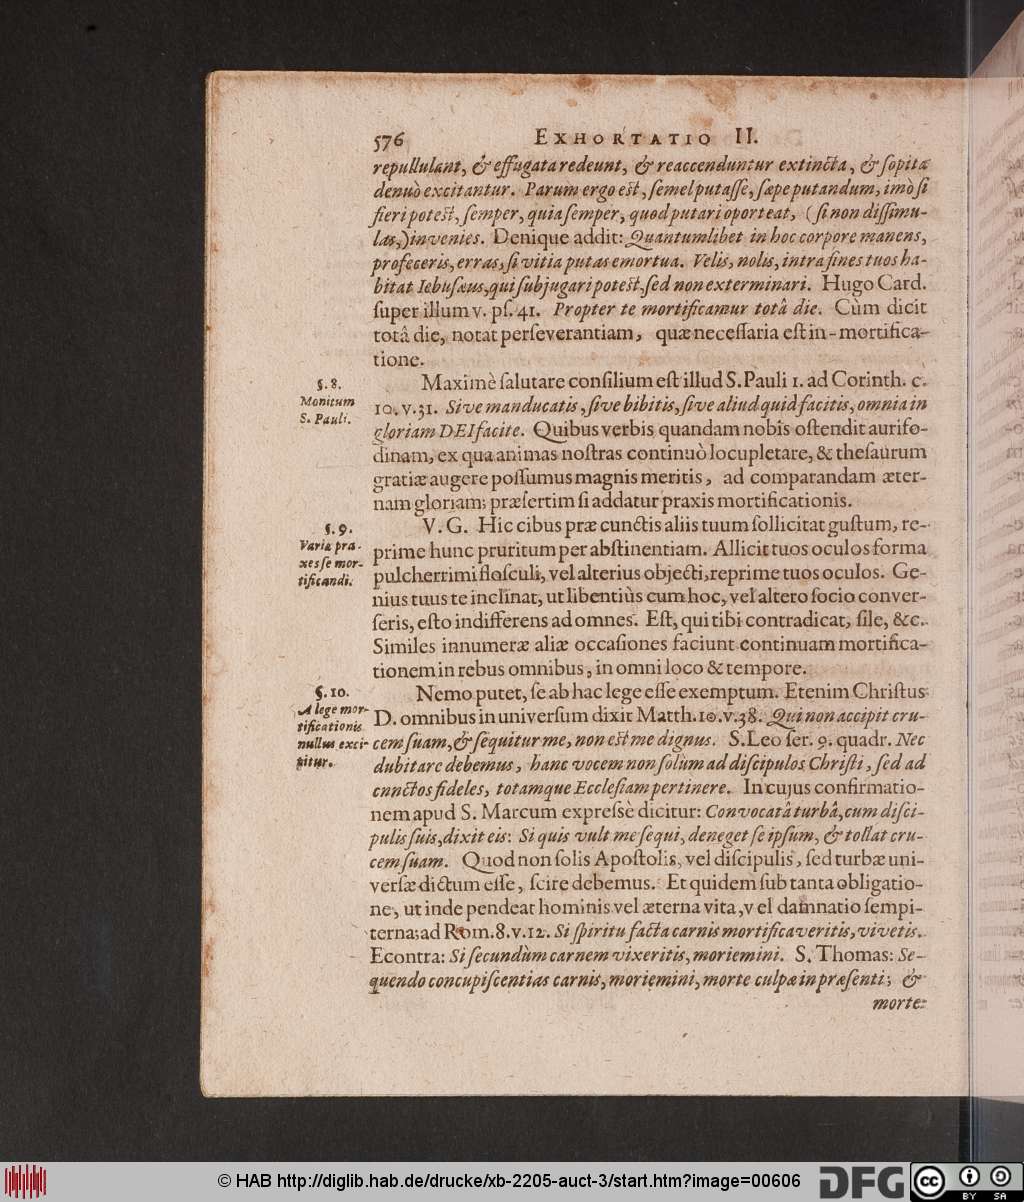 576 EXHORTATIO II.
repullulant, & effugata redeunt, & reaccenduntur extincta, & ſopitæ
denuò excitantur. Parum ergo eſt, ſemel putaſſe, ſæpe putandum, imò ſi
fieri poteſt, ſemper, quia ſemper, quod putari oporteat, (ſi non diſſimu-
las,) invenies. Denique addit: Quantumlibet in hoc corpore manens,
profeceris, erras, ſi vitia putas emortua. Velis, nolis, intra fines tuos ha-
bitat Iebuſæus, qui ſubjugari poteſt, ſed non exterminari. Hugo Card.
ſuper illum v. pſ. 41. Propter te mortificamur totâ die. Cùm dicit
totâ die, notat perſeverantiam, quæ neceſſaria eſt in-mortifica-
tione.
§. 8.
Monitum
S. Pauli.
Maximè ſalutare conſilium eſt illud S. Pauli 1. ad Corinth. c.
10. v. 31. Sive manducatis, ſive bibitis, ſive aliud quid facitis, omnia in
gloriam DEI facite. Quibus verbis quandam nobis oſtendit aurifo-
dinam, ex qua animas noſtras continuò locupletare, & theſaurum
gratiæ augere poſſumus magnis meritis, ad comparandam æter-
nam gloriam; præſertim ſi addatur praxis mortificationis.
§. 9.
Variæ pra-
xes ſe mor-
tificandi.
V. G. Hic cibus præ cunctis aliis tuum ſollicitat guſtum, re-
prime hunc pruritum per abſtinentiam. Allicit tuos oculos forma
pulcherrimi floſculi, vel alterius objecti, reprime tuos oculos. Ge-
nius tuus te inclinat, ut libentiùs cum hoc, vel altero ſocio conver-
ſeris, eſto indifferens ad omnes. Eſt, qui tibi contradicat, ſile, &c.
Similes innumeræ aliæ occaſiones faciunt continuam mortifica-
tionem in rebus omnibus, in omni loco & tempore.
§. 10.
A lege mor-
tificationis
nullus exci-
pitur.
Nemo putet, ſe ab hac lege eſſe exemptum. Etenim Chriſtus
D. omnibus in univerſum dixit Matth. 10. v. 38. Qui non accipit cru-
cem ſuam, & ſequitur me, non eſt me dignus. S. Leo ſer. 9. quadr. Nec
dubitare debemus, hanc vocem non ſolùm ad diſcipulos Chriſti, ſed ad
cunctos fideles, totamque Eccleſiam pertinere. In cujus confirmatio-
nem apud S. Marcum expreſsè dicitur: Convocatâ turbâ, cum diſci-
pulis ſuis, dixit eis: Si quis vult me ſequi, deneget ſe ipſum, & tollat cru-
cem ſuam. Quod non ſolis Apoſtolis, vel diſcipulis, ſed turbæ uni-
verſæ dictum eſſe, ſcire debemus. Et quidem ſub tanta obligatio-
ne, ut inde pendeat hominis vel æterna vita, v el damnatio ſempi-
terna; ad Rom. 8. v. 12. Si ſpiritu facta carnis mortificaveritis, vivetis.
Econtra: Si ſecundùm carnem vixeritis, moriemini. S. Thomas: Se-
quendo concupiſcentias carnis, moriemini, morte culpæ in præſenti; &
morte
© HAB http://diglib.hab.de/drucke/xb-2205-auct-3/start.htm?image=00606
DFG
cc BY SA